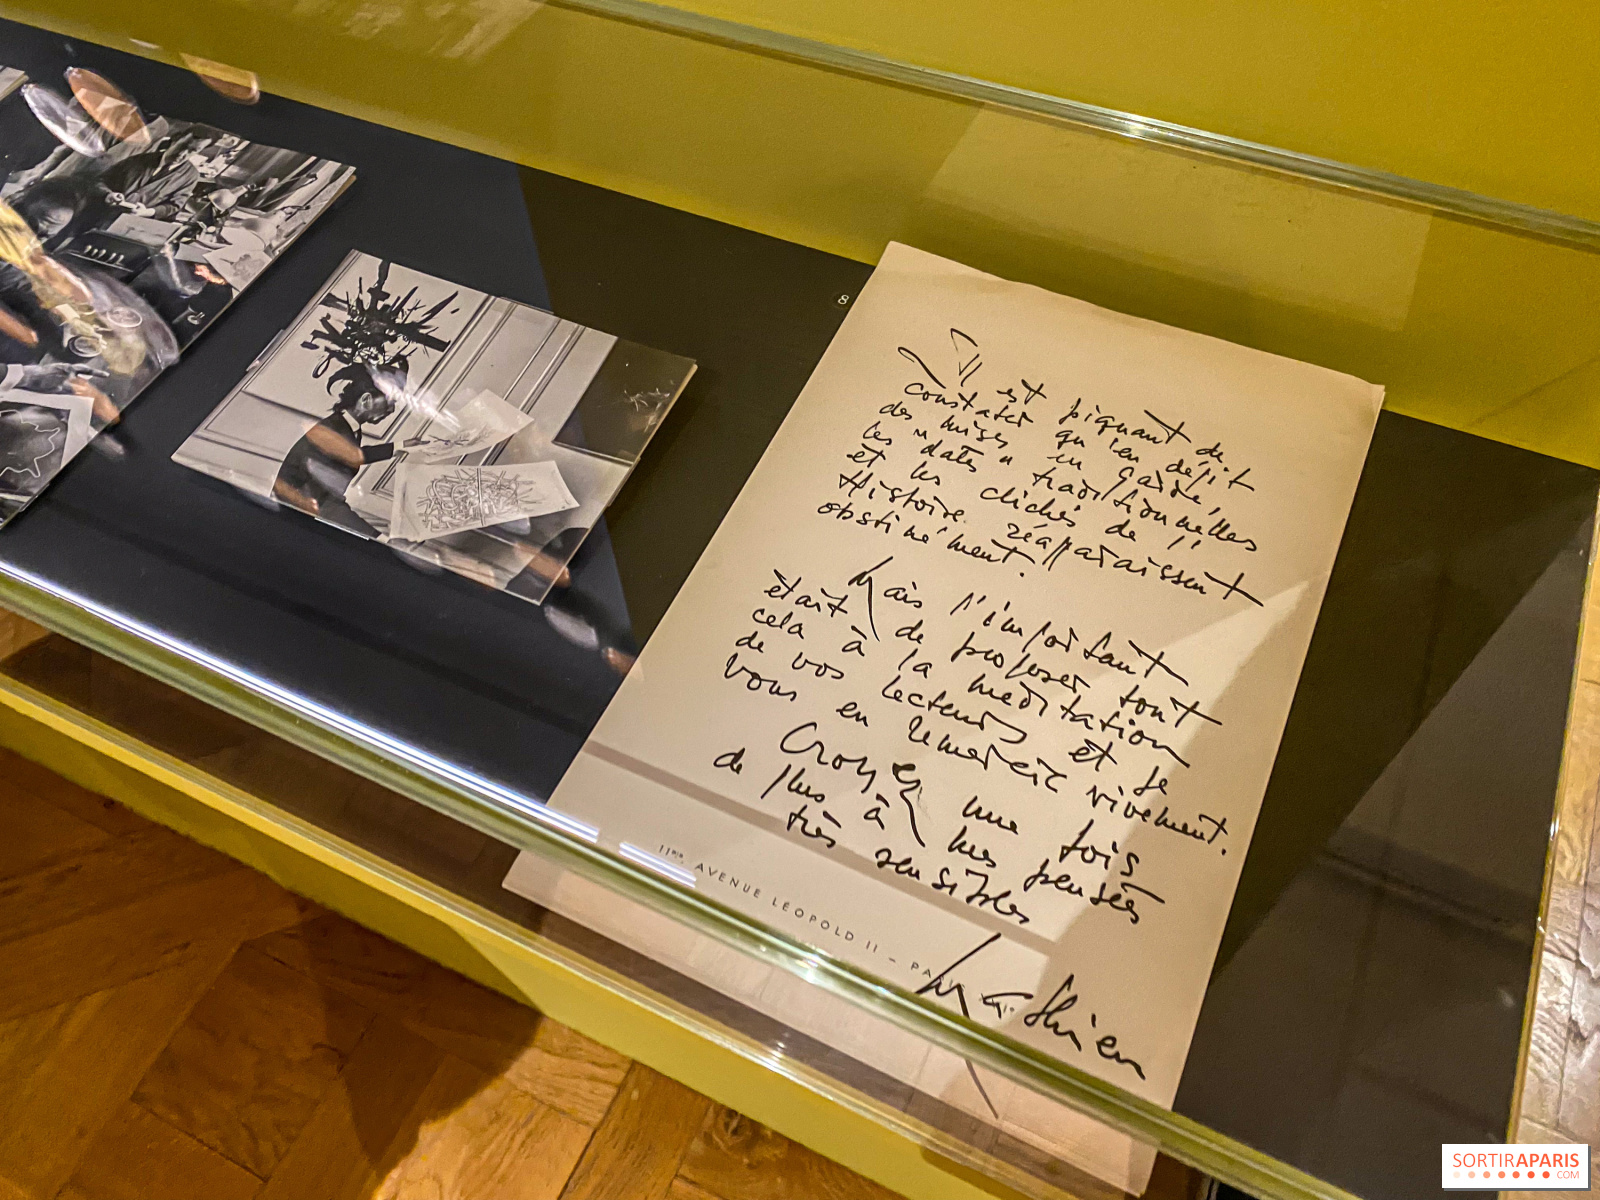 8
Il est piquant de
constater qu'en dépit
des mises en garde,
les "dates" traditionnelles
et les clichés de l'
Histoire réapparaissent
obstinément.
Mais l'important
était de proposer tout
cela à la méditation
de vos lecteurs et je
vous en remercie vivement.
Croyez une fois
de plus à mes pensées
très sensibles
Mathieu
11BIS, AVENUE LÉOPOLD II – PA
SORTIRAPARIS
.COM